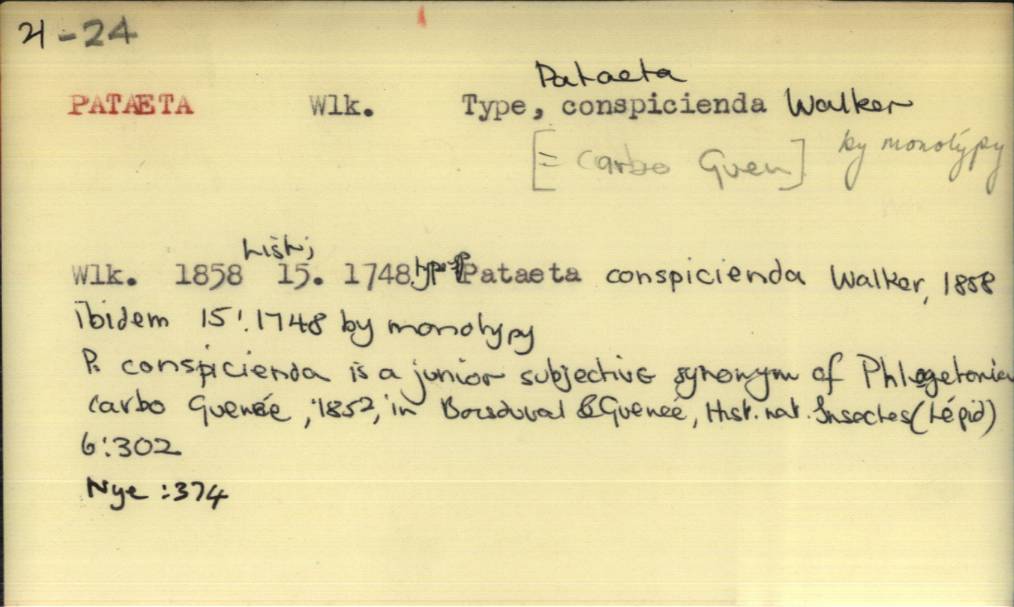 21-24
Pataeta
PATAETA Wlk. Type, conspicienda Walker
[= Carbo Guen] by monotypy
List;
Wlk. 1858 15. 1748. Pataeta conspicienda Walker, 1858
ibidem 15:1748 by monotypy
P. conspicienda is a junior subjective synonym of Phlegetonia
carbo Guenée, 1852, in Boisduval & Guenée, Hist. nat. Insectes (Lépid)
6:302
Nye :374